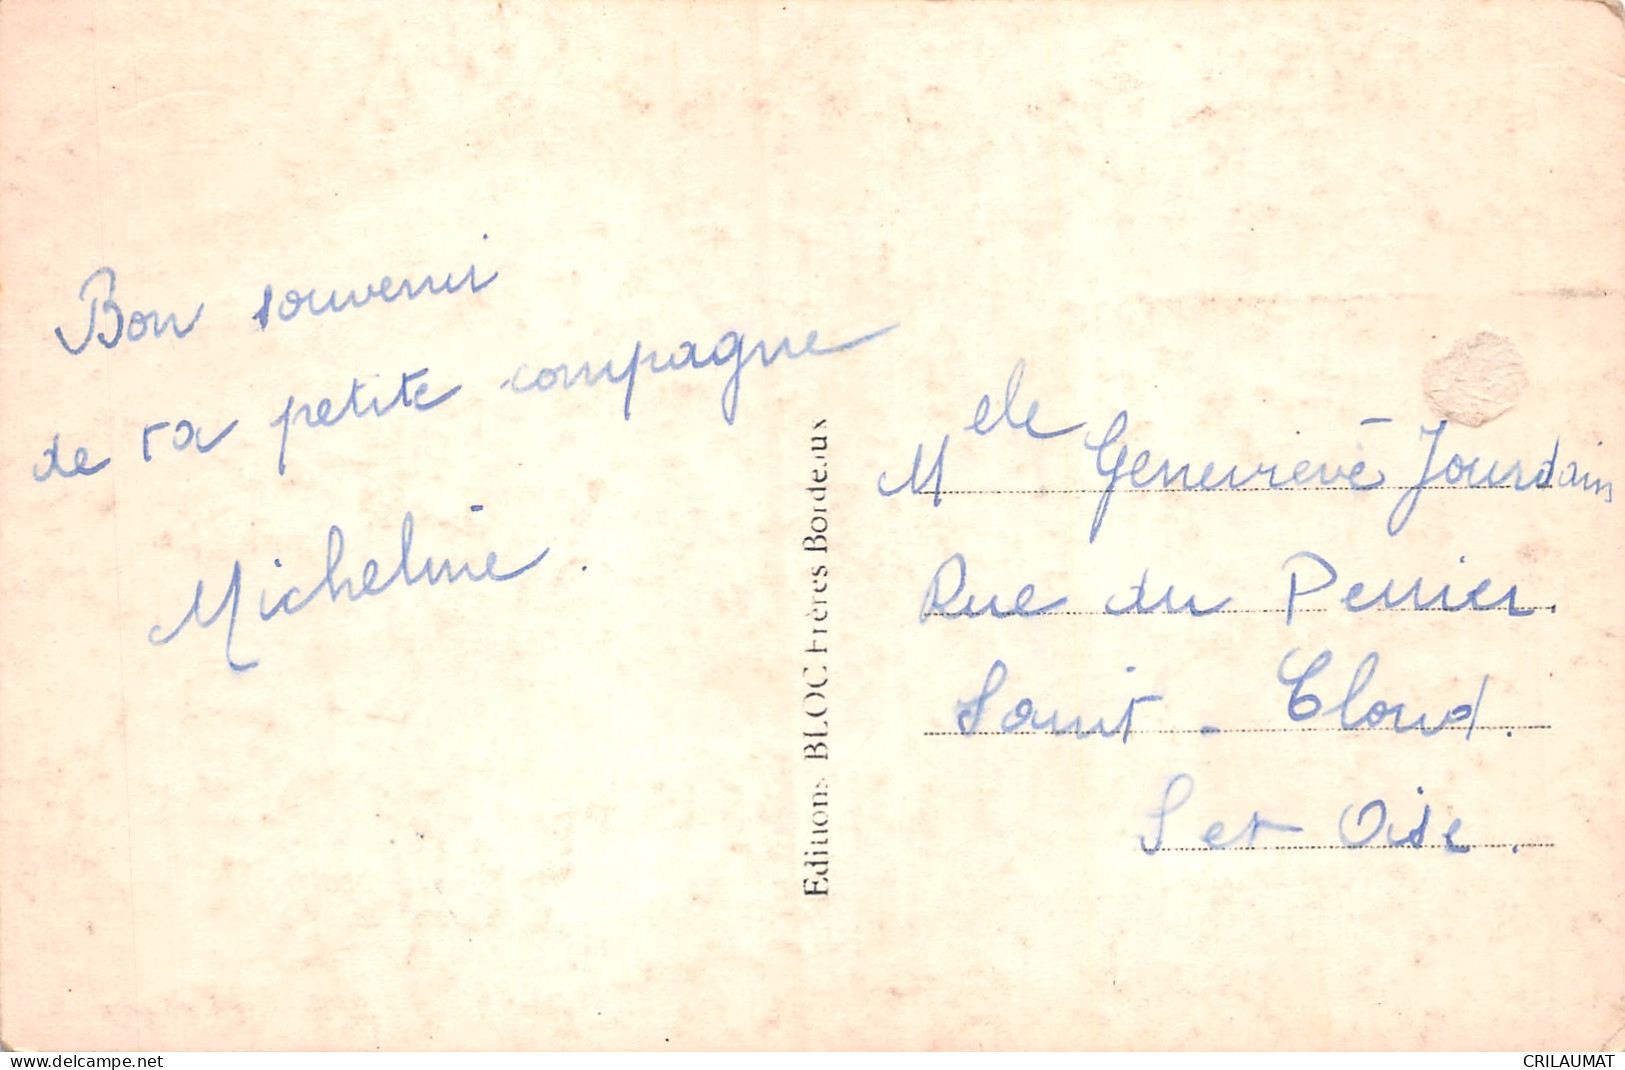 Bon souvenir
de ta petite compagne
Micheline.
Editions BLOC Frères Bordeaux
Melle Geneviève Jourdain
Rue du Perrier.
Saint-Cloud.
S et Oise.
www.delcampe.net
CRILAUMAT